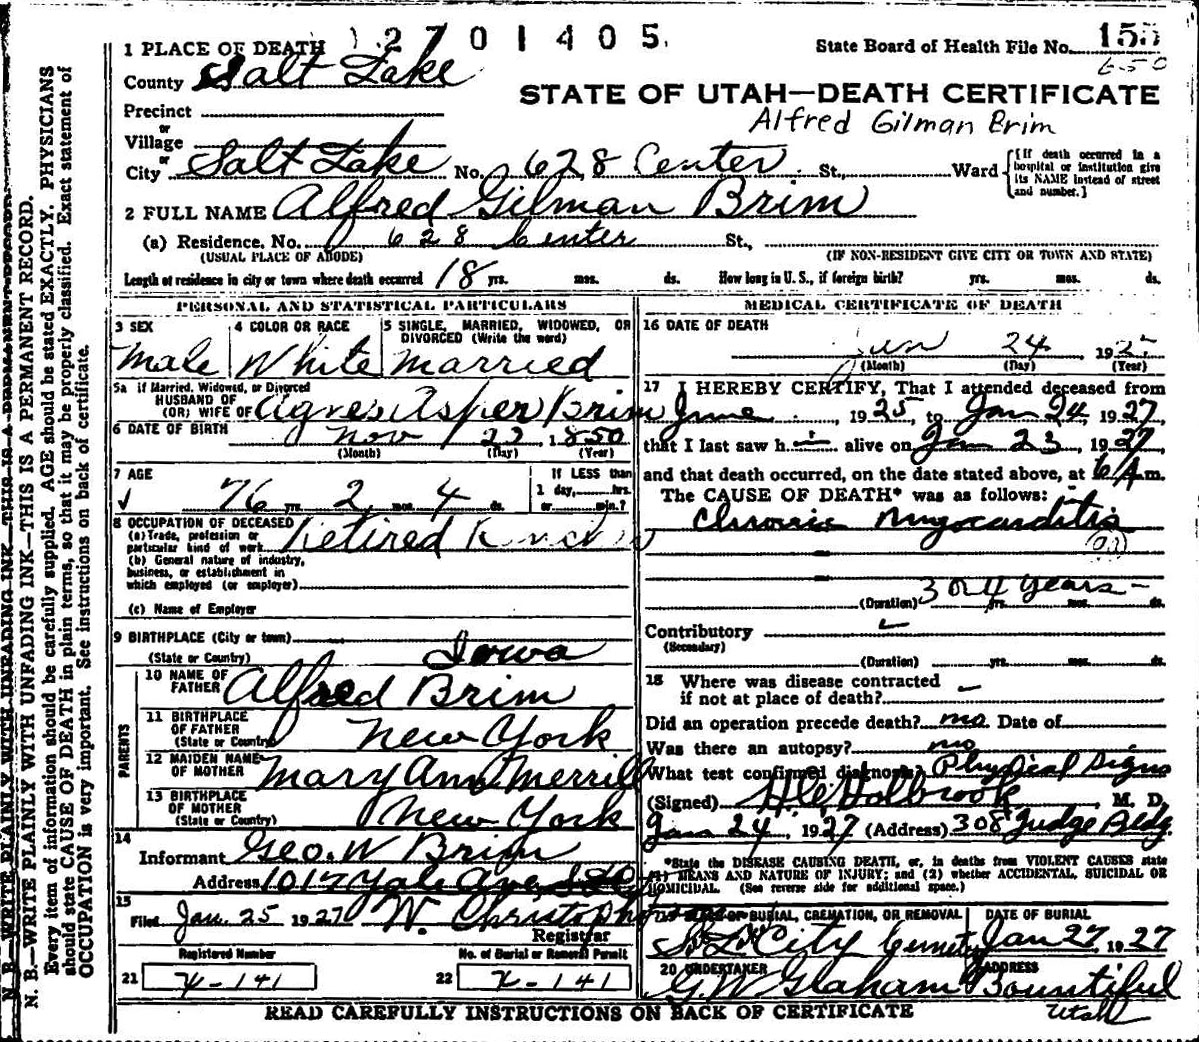 1 PLACE OF DEATH 12701405. State Board of Health File No. 155
County Salt Lake 650
STATE OF UTAH—DEATH CERTIFICATE
Precinct
Alfred Gilman Brim
or
Village
or
City Salt Lake No. 628 Center St., Ward {[If death occurred in a hospital or institution give its NAME instead of street and number.]
2 FULL NAME Alfred Gilman Brim
(a) Residence, No. 628 Center St.,
(USUAL PLACE OF ABODE) (IF NON-RESIDENT GIVE CITY OR TOWN AND STATE)
Length of residence in city or town where death occurred 18 yrs. mos. ds. How long in U. S., if foreign birth? yrs. mos. ds.
PERSONAL AND STATISTICAL PARTICULARS
3 SEX
Male
4 COLOR OR RACE
White
5 SINGLE, MARRIED, WIDOWED, OR DIVORCED (Write the word)
Married
5a if Married, Widowed, or Divorced
HUSBAND OF
(OR) WIFE OF Agnes Asper Brim
6 DATE OF BIRTH Nov 1850
(Month) (Day) (Year)
7 AGE If LESS than
76 yrs. 2 mos. 4 ds. 1 day, hrs.
or min.?
8 OCCUPATION OF DECEASED
(a) Trade, profession or
particular kind of work Retired
(b) General nature of industry,
business, or establishment in
which employed (or employer)
(c) Name of Employer
9 BIRTHPLACE (City or town)
(State or Country) Iowa
PARENTS
10 NAME OF
FATHER Alfred Brim
11 BIRTHPLACE
OF FATHER
(State or Country) New York
12 MAIDEN NAME
OF MOTHER Mary Ann Merrill
13 BIRTHPLACE
OF MOTHER
(State or Country) New York
14
Informant Geo. W Brim
Address 1017 Yale Ave
15
Filed Jan. 25 1927 W. Christopherson
Registrar
Registered Number No. of Burial or Removal Permit
21 X-141 22 X-141
MEDICAL CERTIFICATE OF DEATH
16 DATE OF DEATH
Jan 24, 1927
(Month) (Day) (Year)
17 I HEREBY CERTIFY, That I attended deceased from
June, 1925, to Jan 24, 1927,
that I last saw h i alive on Jan 23, 1927
and that death occurred, on the date stated above, at 6 A m.
The CAUSE OF DEATH* was as follows:
Chronic Myocarditis
(90)
(Duration) 3 or 4 years mos. ds.
Contributory
(Secondary)
(Duration) yrs. mos. ds.
18 Where was disease contracted
if not at place of death?
Did an operation precede death? no Date of
Was there an autopsy? no
What test confirmed diagnosis? Physical Signs
(Signed) H.C. Holbrook, M. D.
Jan 24, 1927 (Address) 308 Judge Bldg
*State the DISEASE CAUSING DEATH, or, in deaths from VIOLENT CAUSES state
(1) MEANS AND NATURE OF INJURY; and (2) whether ACCIDENTAL, SUICIDAL OR
HOMICIDAL. (See reverse side for additional space.)
OF BURIAL, CREMATION, OR REMOVAL DATE OF BURIAL
S. L. City Cemetery Jan 27, 1927
20 UNDERTAKER ADDRESS
G W Glaham Bountiful
Utah
READ CAREFULLY INSTRUCTIONS ON BACK OF CERTIFICATE
N. B.—WRITE PLAINLY WITH UNFADING INK—THIS IS A PERMANENT RECORD.
N. B.—WRITE PLAINLY WITH UNFADING INK—THIS IS A PERMANENT RECORD.
Every item of information should be carefully supplied. AGE should be stated EXACTLY. PHYSICIANS
should state CAUSE OF DEATH in plain terms, so that it may be properly classified. Exact statement of
OCCUPATION is very important. See instructions on back of certificate.